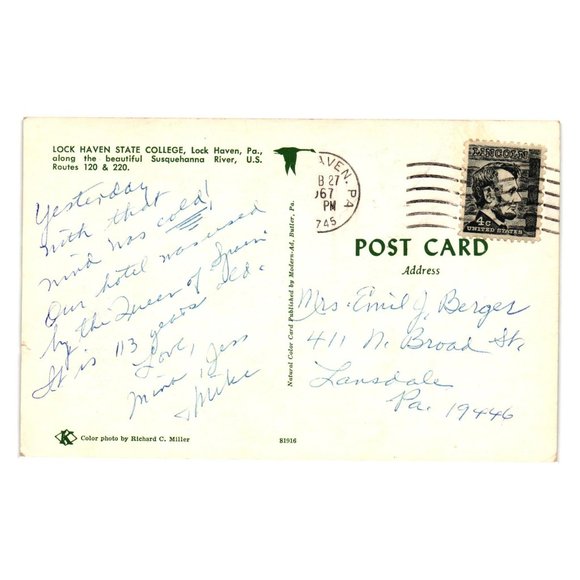 LOCK HAVEN STATE COLLEGE, Lock Haven, Pa.,
along the beautiful Susquehanna River, U.S.
Routes 120 & 220.
Yesterday
with that
wind was cold!
Our hotel was used
by the Queen of Spain.
It is 113 years old.
Love,
Jess
& Mike
Color photo by Richard C. Miller
81916
Natural Color Card Published by Modern-Ad, Butler, Pa.
AVEN, PA
B 27
1967
PM
745
LINCOLN
4c
UNITED STATES
POST CARD
Address
Mrs. Emil J. Berger
411 N. Broad St.
Lansdale
Pa. 19446
K